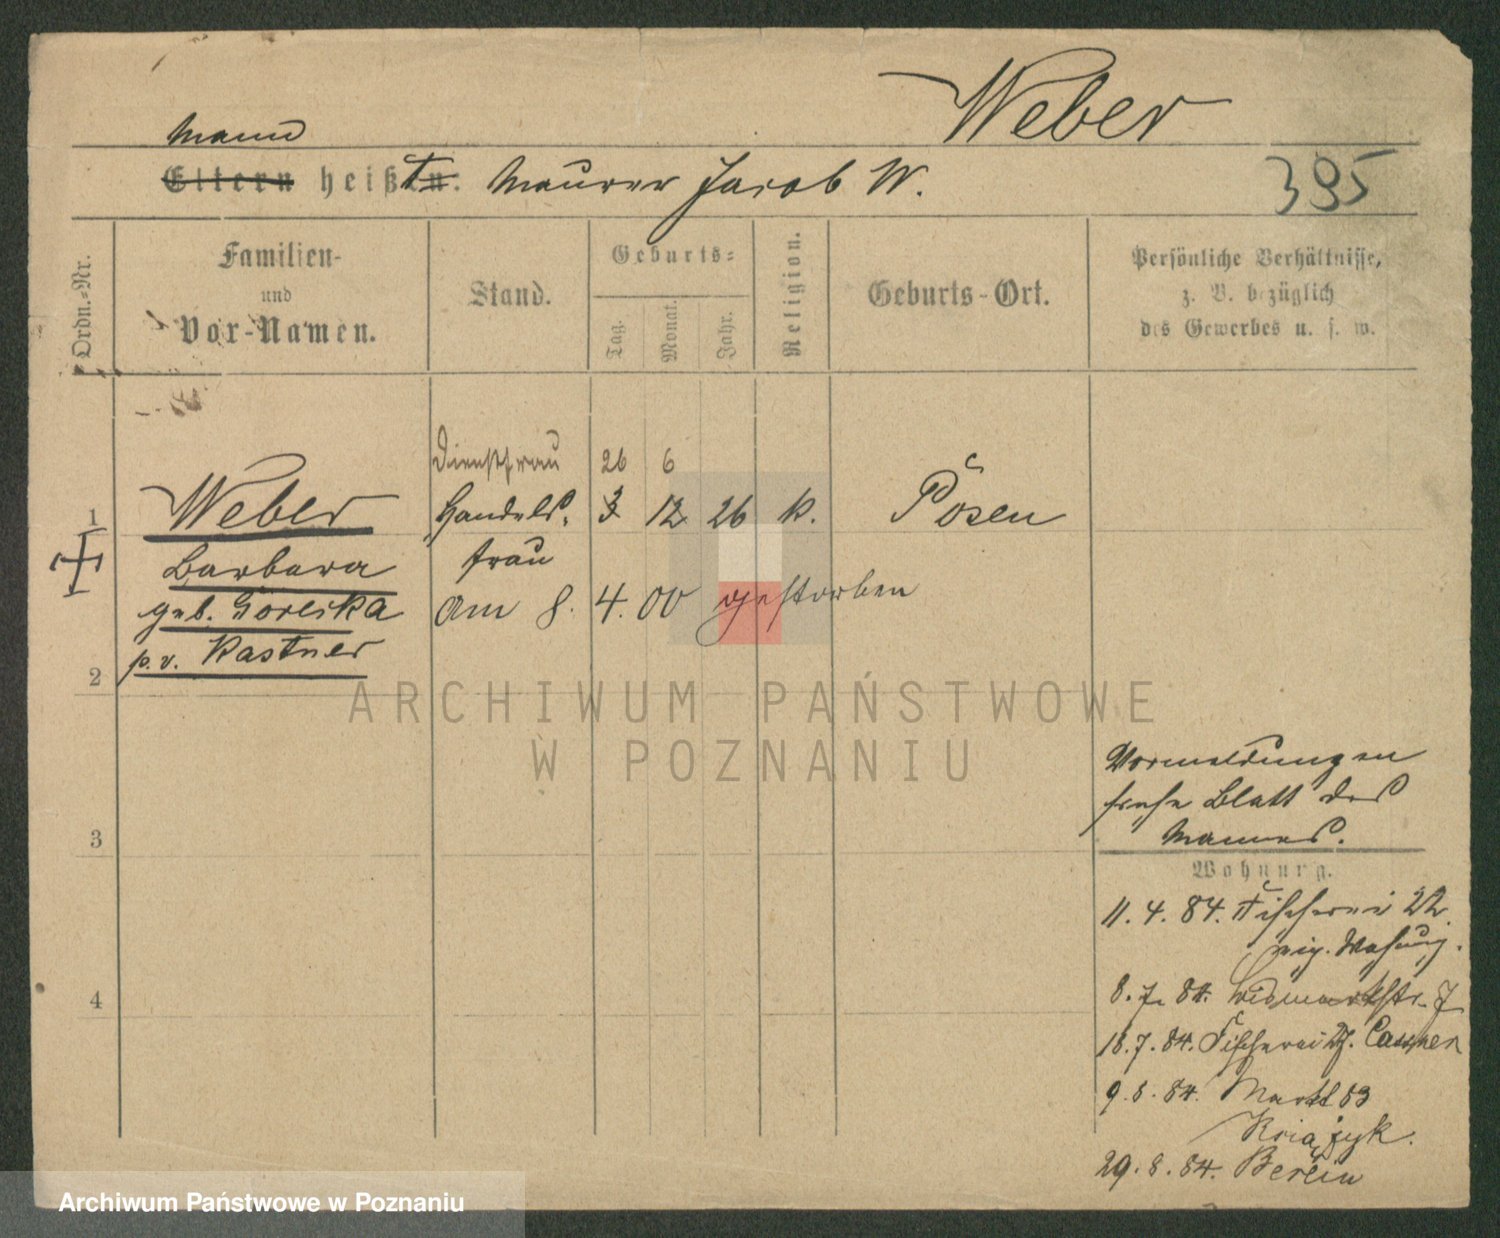 Weber
Mann
Eltern heißt. Maurer Jacob W.
395
Ordn.-Nr.
Familien-
und
Vor-Namen.
Stand.
Geburts-
Tag.
Monat.
Jahr.
Religion.
Geburts-Ort.
Persönliche Verhältnisse,
z. B. bezüglich
des Gewerbes u. s. w.
Dienstfrau 26 6
1 Weber Handels- 3 12 26 k. Posen
Barbara frau
geb. Gorelska am 8. 4. 00 gestorben
p. v. Kastner
2
ARCHIWUM PAŃSTWOWE
W POZNANIU
Vormeldungen
siehe Blatt des
Mannes.
3
Wohnung.
11. 4. 84. Fischerei 22.
eig. Wohung.
4
8. 7. 84. Bismarkstr. 7
18. 7. 84. Fischerei
9. 8. 84. Markt 83
29. 8. 84. Berlin
Archiwum Państwowe w Poznaniu